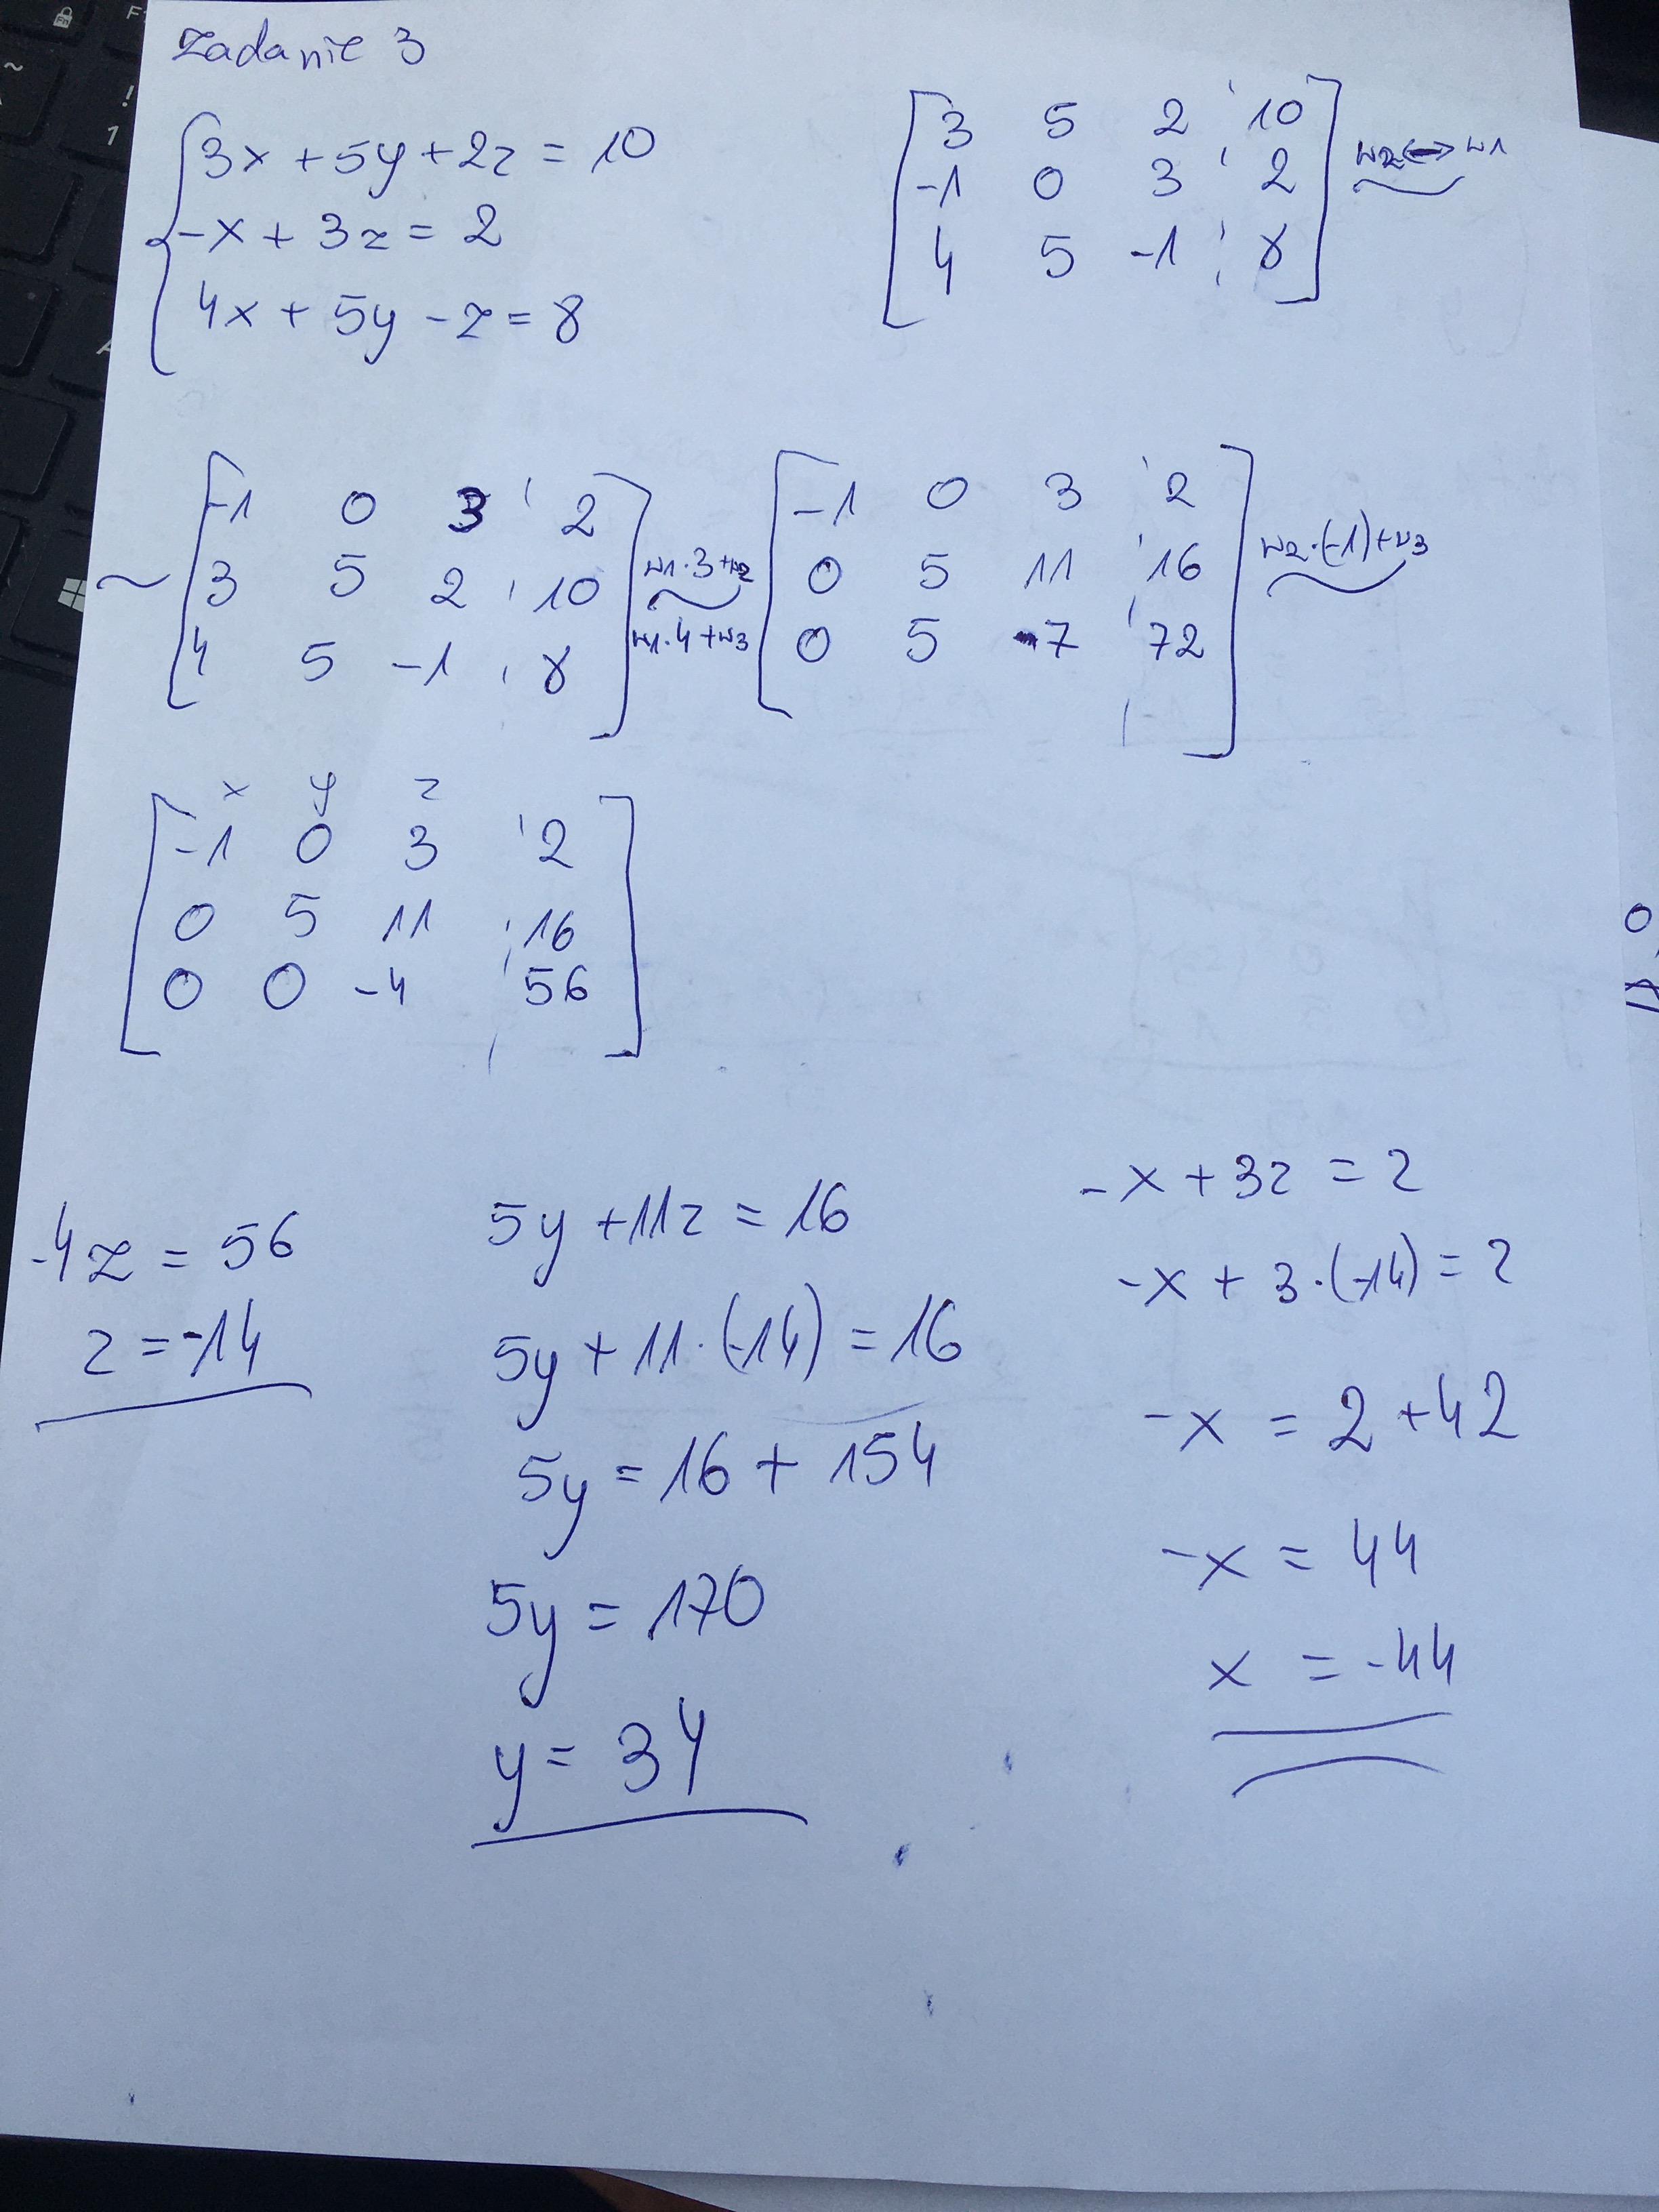 Zadanie 3
3x + 5y + 2z = 10
-x + 3z = 2
4x + 5y - z = 8
3 5 2 10
-1 0 3 2
4 5 -1 8
w2 ↔ w1
~
-1 0 3 2
3 5 2 10
4 5 -1 8
w1·3+w2
w1·4+w3
-1 0 3 2
0 5 11 16
0 5 7 72
w2·(-1)+w3
x y z
-1 0 3 2
0 5 11 16
0 0 -4 56
-4z = 56
z = -14
5y + 11z = 16
5y + 11·(-14) = 16
5y = 16 + 154
5y = 170
y = 34
-x + 3z = 2
-x + 3·(-14) = 2
-x = 2 + 42
-x = 44
x = -44